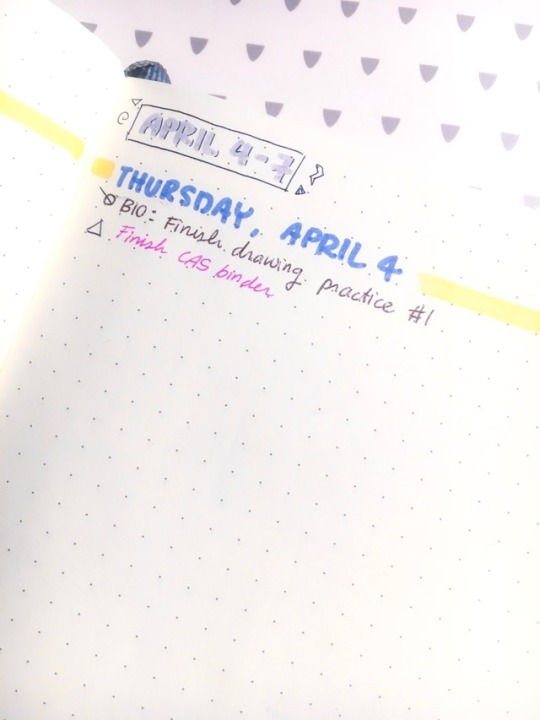 APRIL 4-7
THURSDAY, APRIL 4
BIO: Finish drawing practice #1
Finish CAS binder